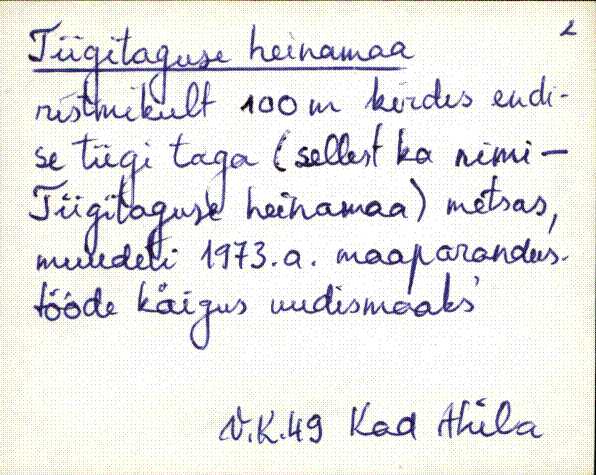 2
Tiigitaguse heinamaa
ristmikult 100 m kirdes endi-
se tiigi taga (sellest ka nimi –
Tiigitaguse heinamaa) metsas,
muudeti 1973.a. maaparandus-
tööde käigus uudismaaks
V.K.49 Kad Ahila